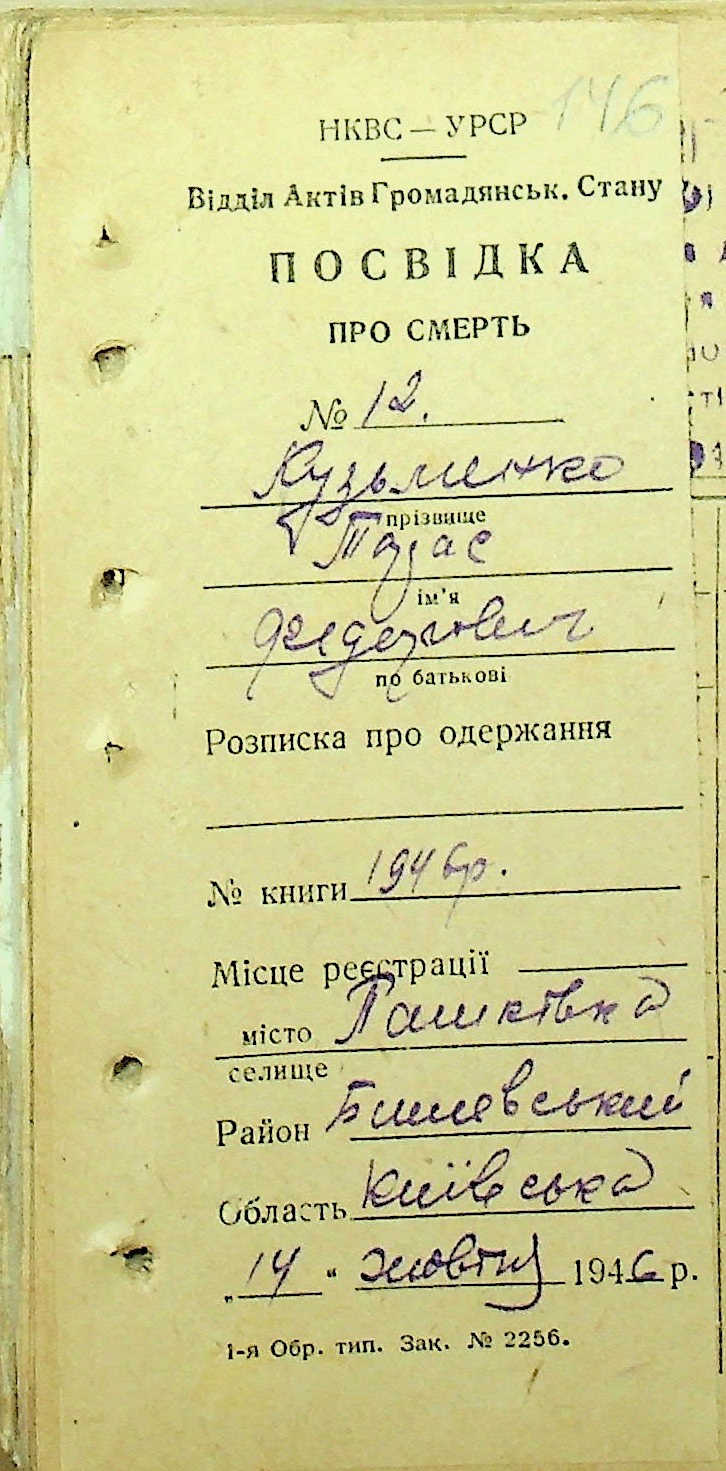 146
НКВС — УРСР
Відділ Актів Громадянськ. Стану
ПОСВІДКА
ПРО СМЕРТЬ
№ 12.
Кузьменко
прізвище
Тарас
ім'я
Федорович
по батькові
Розписка про одержання
№ книги 1946р.
Місце реєстрації
місто Пашківка
селище
Район Бишевський
Область Київська
„14“ жовтня 1946 р.
1-я Обр. тип. Зак. № 2256.